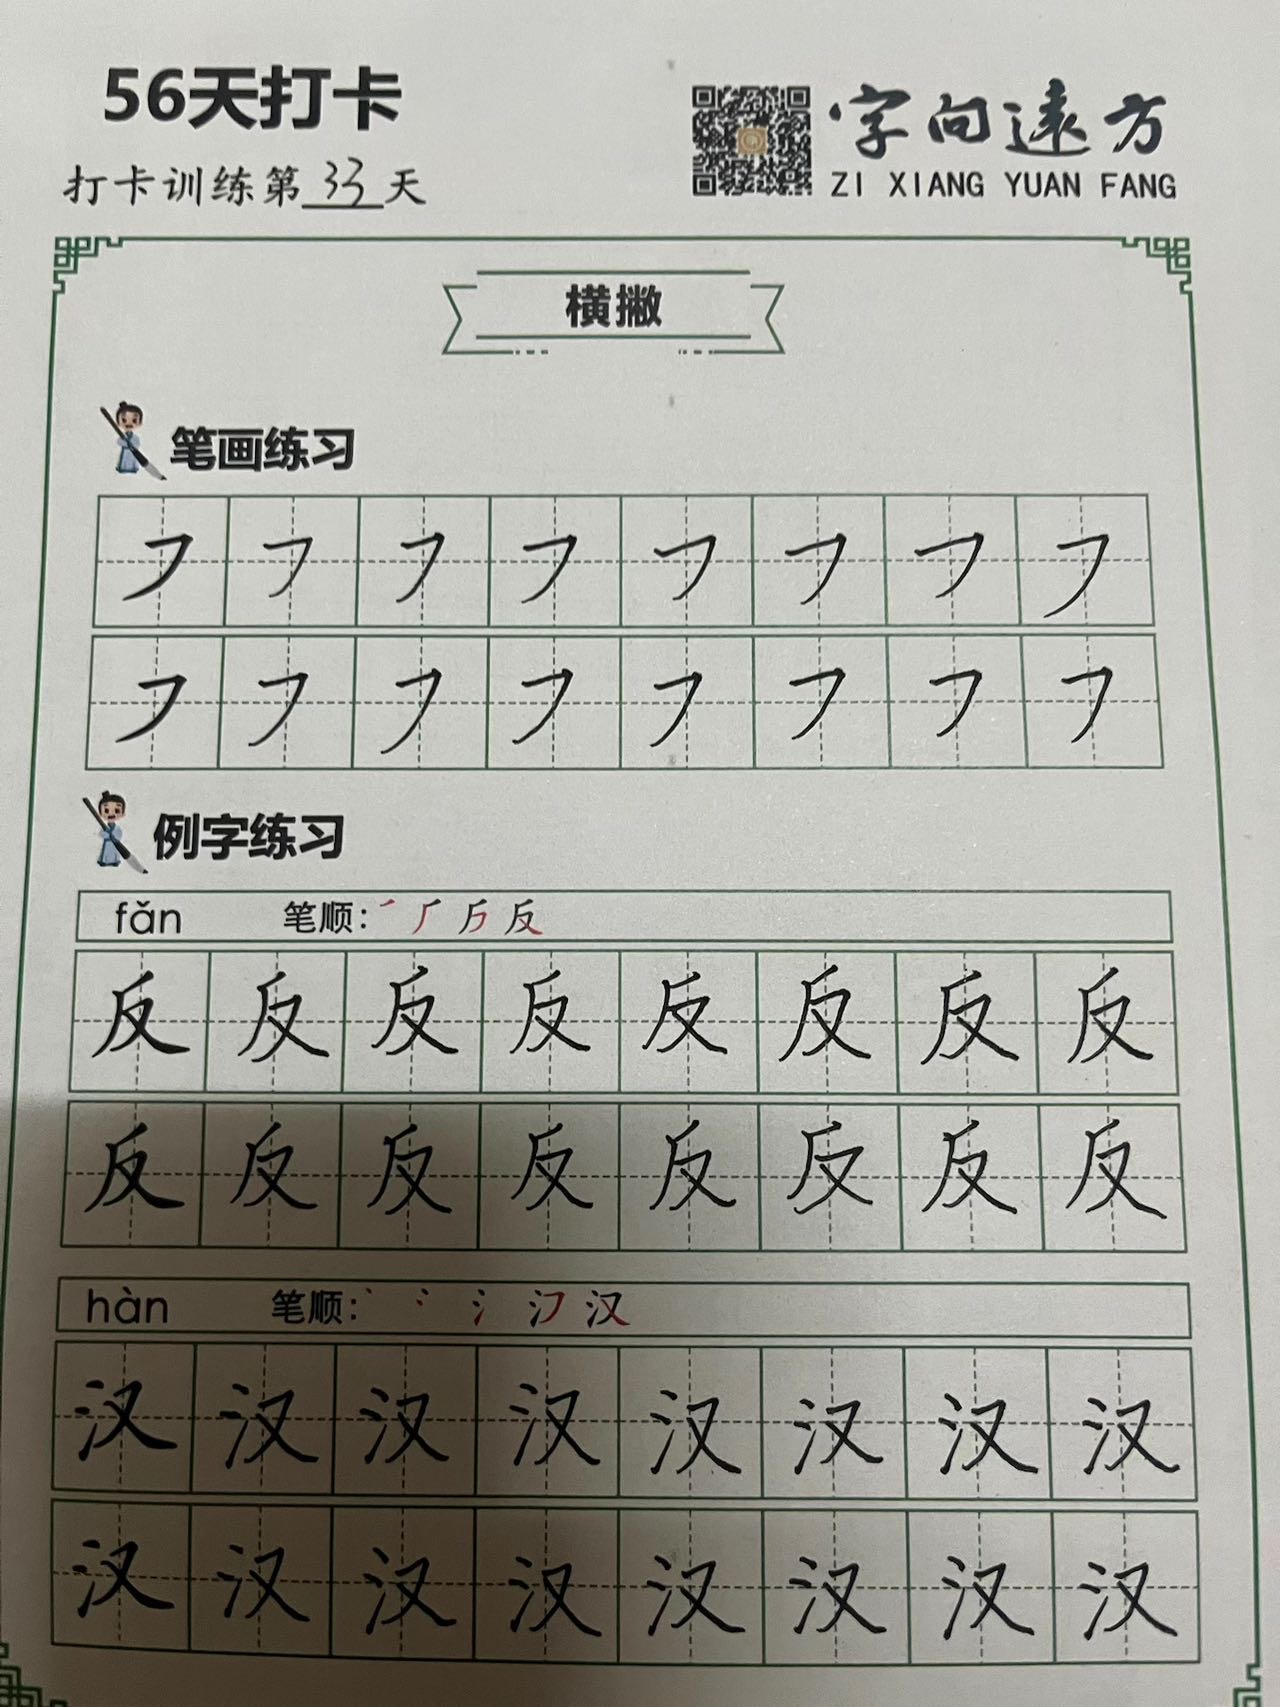 56天打卡
字向遠方
打卡训练第33天
ZI XIANG YUAN FANG
横撇
笔画练习
㇇㇇㇇㇇㇇㇇㇇㇇
㇇㇇㇇㇇㇇㇇㇇㇇
例字练习
fǎn 笔顺: 反
反反反反反反反反
反反反反反反反反
hàn 笔顺: 丶 冫 氵 汉
汉汉汉汉汉汉汉汉
汉汉汉汉汉汉汉汉